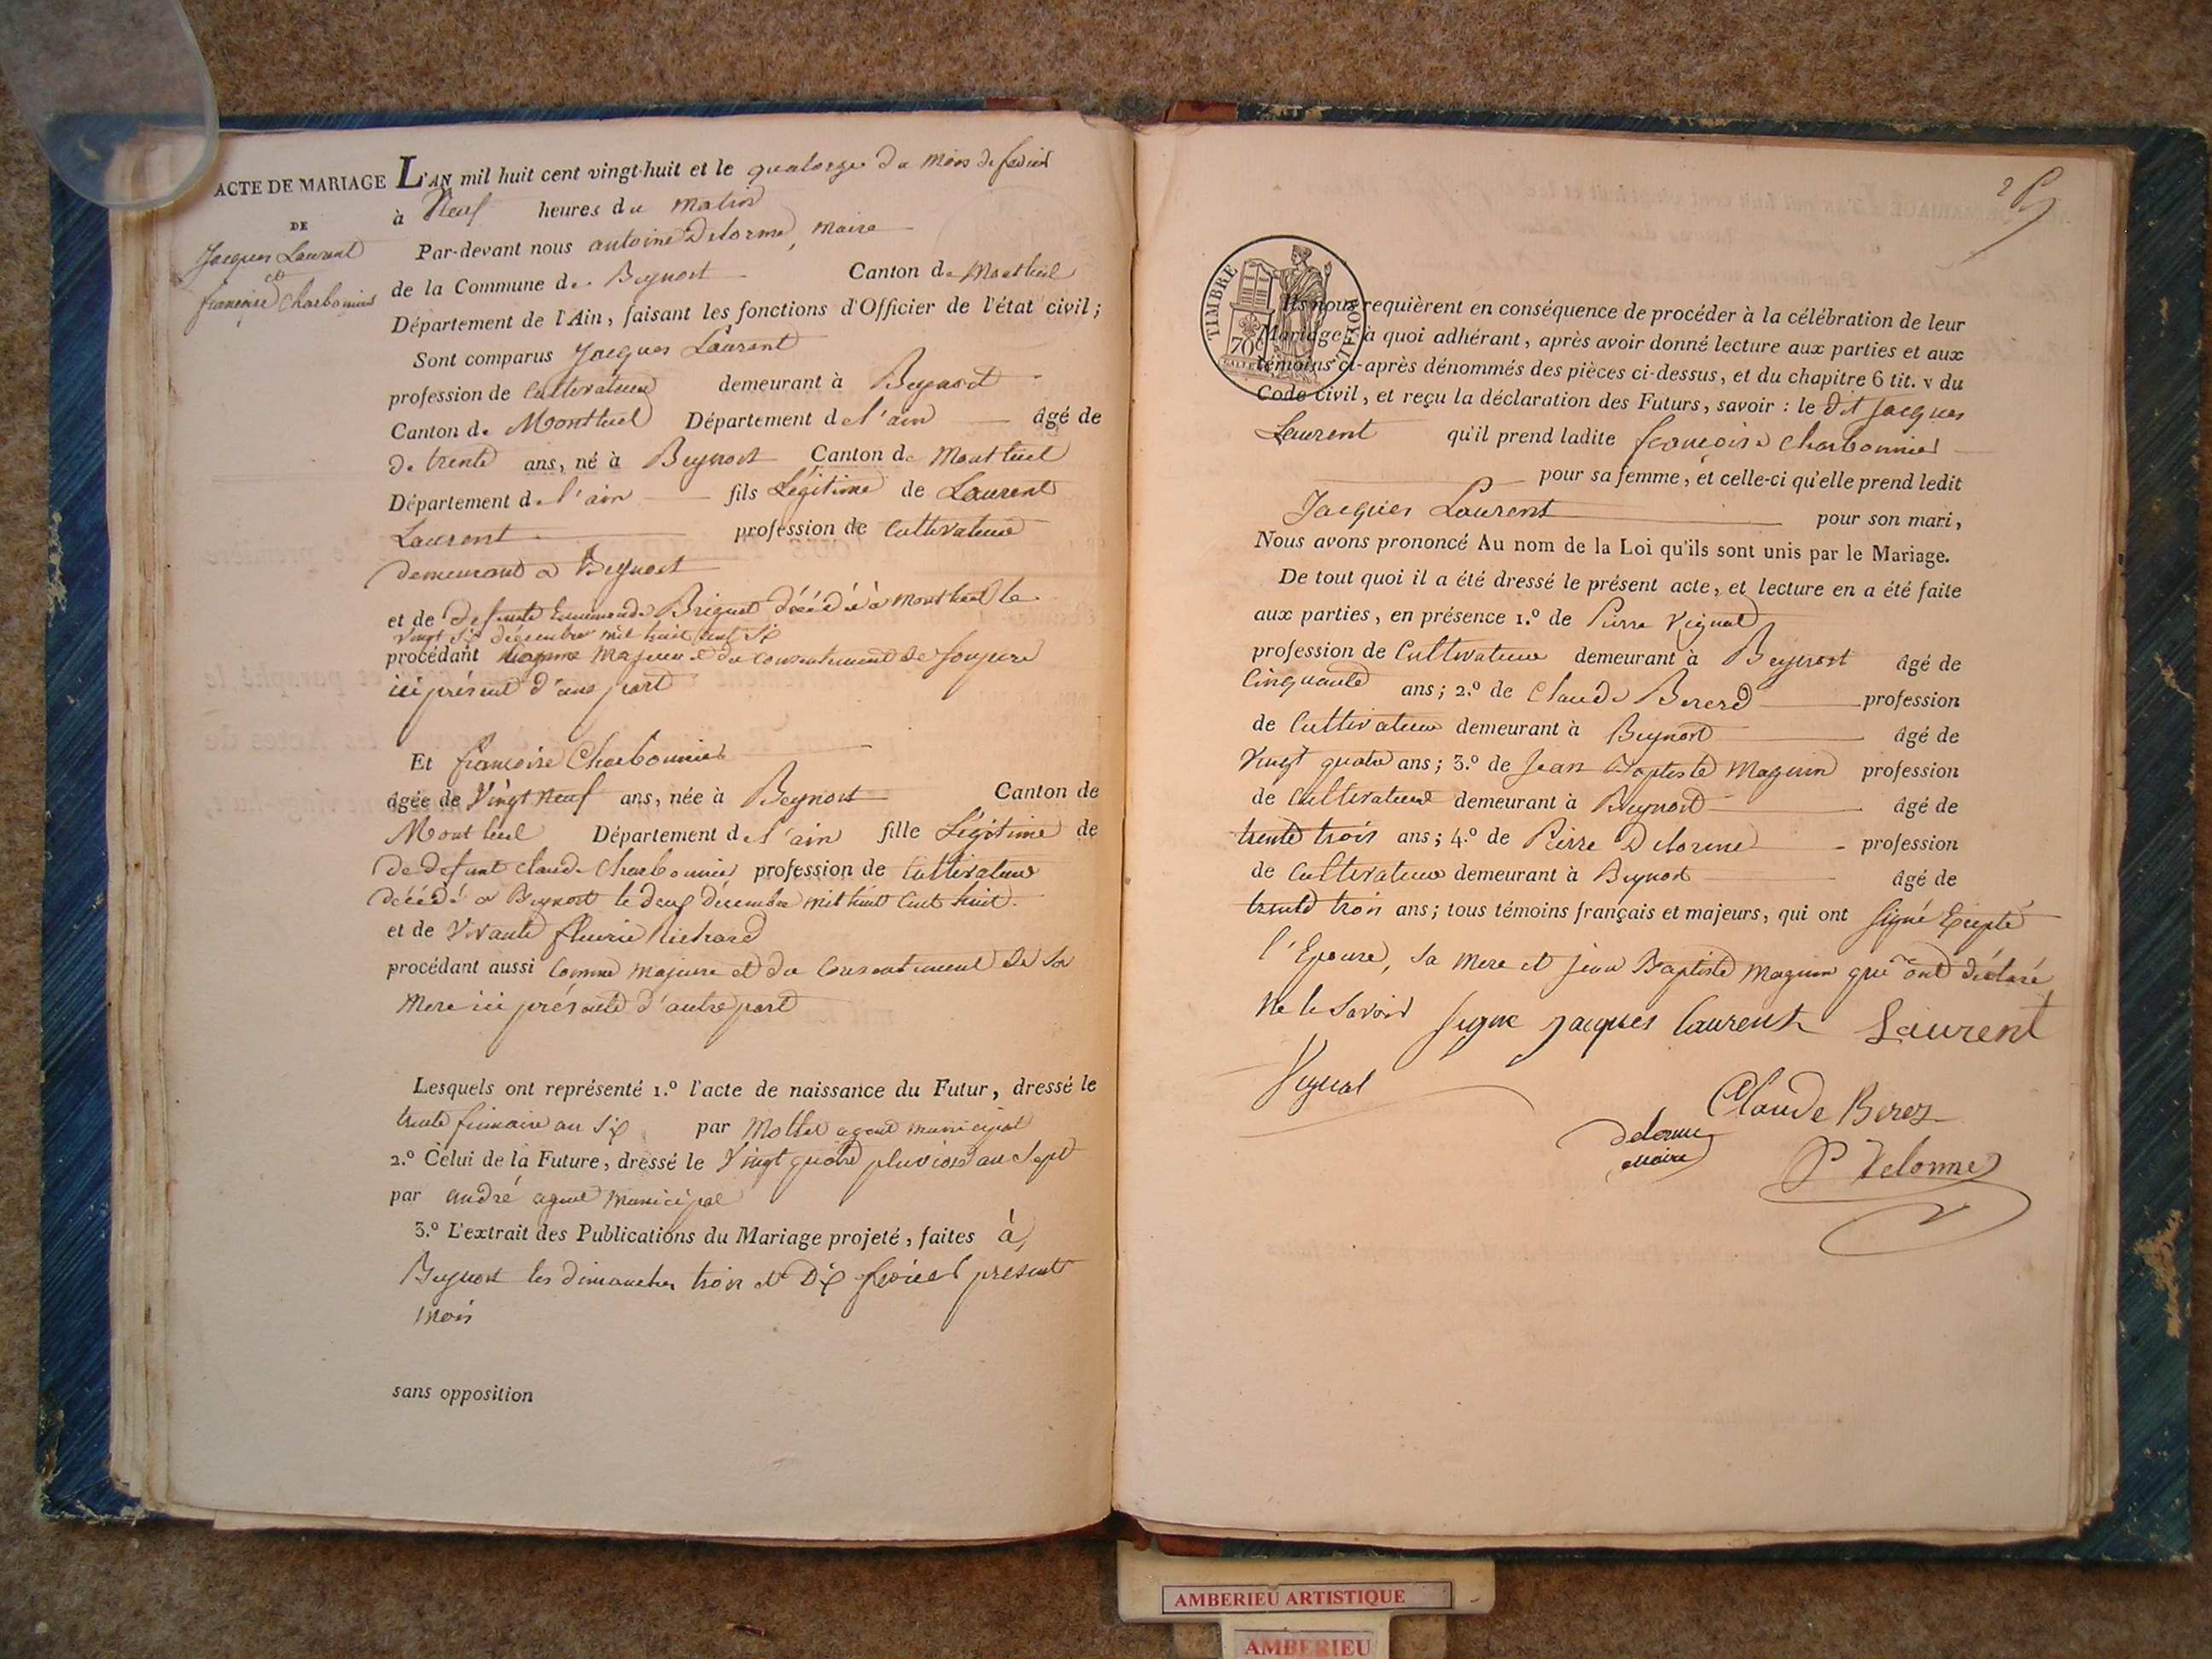 ACTE DE MARIAGE
DE
Jacques Laurent
et
françoise Charbonnier
L'AN mil huit cent vingt-huit et le quatorze du mois de fevrier
à Neuf heures du matin
Par-devant nous antoine Delorme, maire
de la Commune de Beynost Canton de Montluel
Département de l'Ain, faisant les fonctions d'Officier de l'état civil;
Sont comparus Jacques Laurent
profession de Cultivateur demeurant à Beynost
Canton de Montluel Département de l'ain âgé de
de trente ans, né à Beynost Canton de Montluel
Département de l'ain fils Légitime de Laurent
Laurent profession de Cultivateur
demeurant a Beynost
et de defunte Benigne décédée à Montluel le
vingt six décembre mil huit cent six
procédant comme Majeur et du consentement de son pere
ici présent d'une part
Et françoise Charbonnier
âgée de Vingt Neuf ans, née à Beynost Canton de
Montluel Département de l'ain fille Légitime de
de defunt Claude Charbonnier profession de Cultivateur
décédé a Beynost le deux décembre mil huit Cent huit
et de Vivante fleurie Richard
procédant aussi Comme majeure et du Consentement de sa
Mere ici présente d'autre part
Lesquels ont représenté 1.º l'acte de naissance du Futur, dressé le
trente frimaire an Six par Mollet agent municipal
2.º Celui de la Future, dressé le Vingt quatre pluviose an Sept
par andré agent municipal
3.º L'extrait des Publications du Mariage projeté, faites à
Beynost les dimanches trois et Dix fevrier present
mois
sans opposition
TIMBRE ROYAL
70c
Ils nous requièrent en conséquence de procéder à la célébration de leur
Mariage; à quoi adhérant, après avoir donné lecture aux parties et aux
témoins ci-après dénommés des pièces ci-dessus, et du chapitre 6 tit. v du
Code civil, et reçu la déclaration des Futurs, savoir : le dit Jacques
Laurent qu'il prend ladite françoise Charbonnier
pour sa femme, et celle-ci qu'elle prend ledit
Jacques Laurent pour son mari,
Nous avons prononcé Au nom de la Loi qu'ils sont unis par le Mariage.
De tout quoi il a été dressé le présent acte, et lecture en a été faite
aux parties, en présence 1.º de Pierre Vignat
profession de Cultivateur demeurant à Beynost âgé de
Cinquante ans; 2.º de Claude Bererd profession
de Cultivateur demeurant à Beynost âgé de
Vingt quatre ans; 3.º de Jean Baptiste Magnin profession
de Cultivateur demeurant à Beynost âgé de
trente trois ans; 4.º de Pierre Delorme profession
de Cultivateur demeurant à Beynost âgé de
trente trois ans; tous témoins français et majeurs, qui ont signé Excepté
l'Epouse, sa mere et jean Baptiste Magnin qui ont déclaré
Ne le Savoir signé jacques laurent Laurent
Vignat
Claude Berer
delorme
maire
P Delorme
AMBERIEU ARTISTIQUE
AMBERIEU